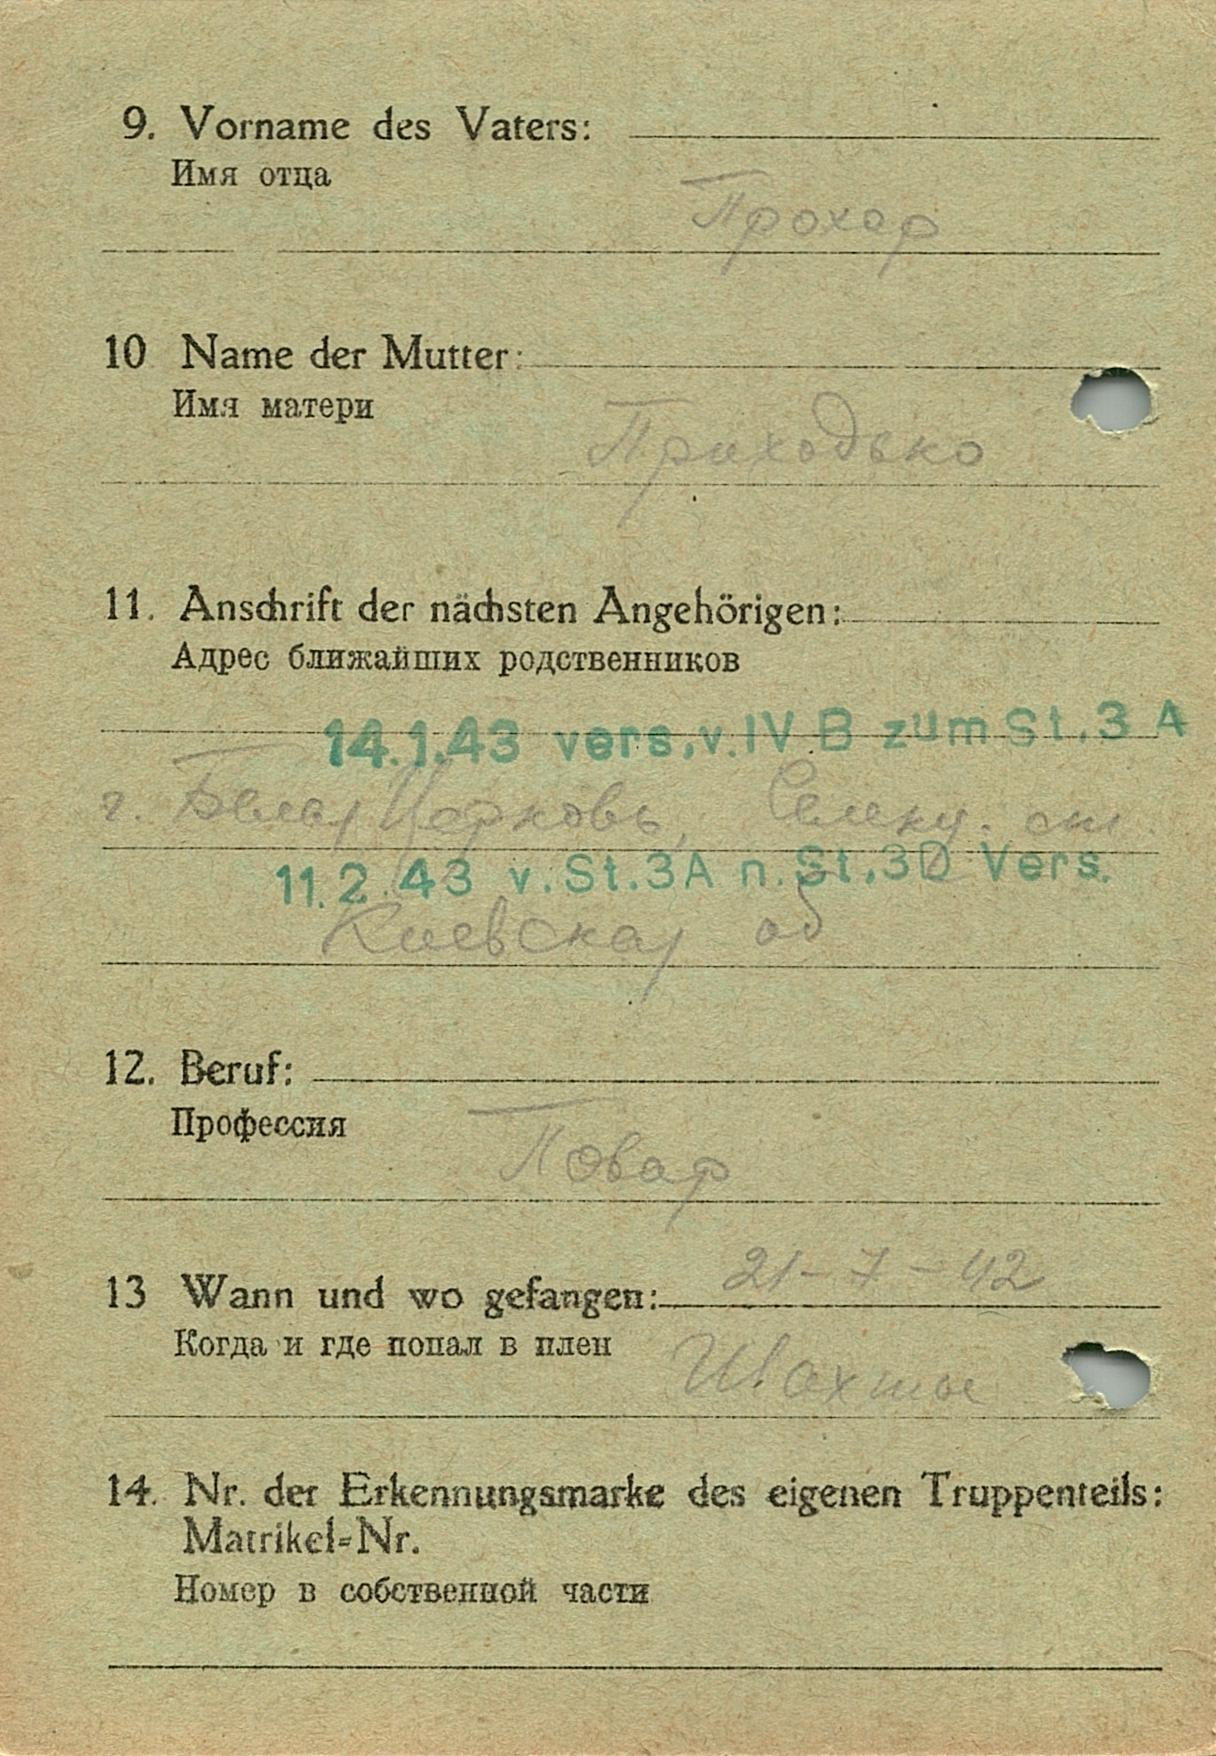 9. Vorname des Vaters:
Имя отца
Прохор
10 Name der Mutter:
Имя матери
Приходько
11. Anschrift der nächsten Angehörigen:
Адрес ближайших родственников
14.1.43 vers.v.IV B zum St.3 A
г. Белая Церковь,
11.2.43 v.St.3A n.St.3D Vers.
Киевская об
12. Beruf:
Профессия
Повар
13 Wann und wo gefangen: 21-7-42
Когда и где попал в плен
Шахты
14. Nr. der Erkennungsmarke des eigenen Truppenteils:
Matrikel-Nr.
Номер в собственной части